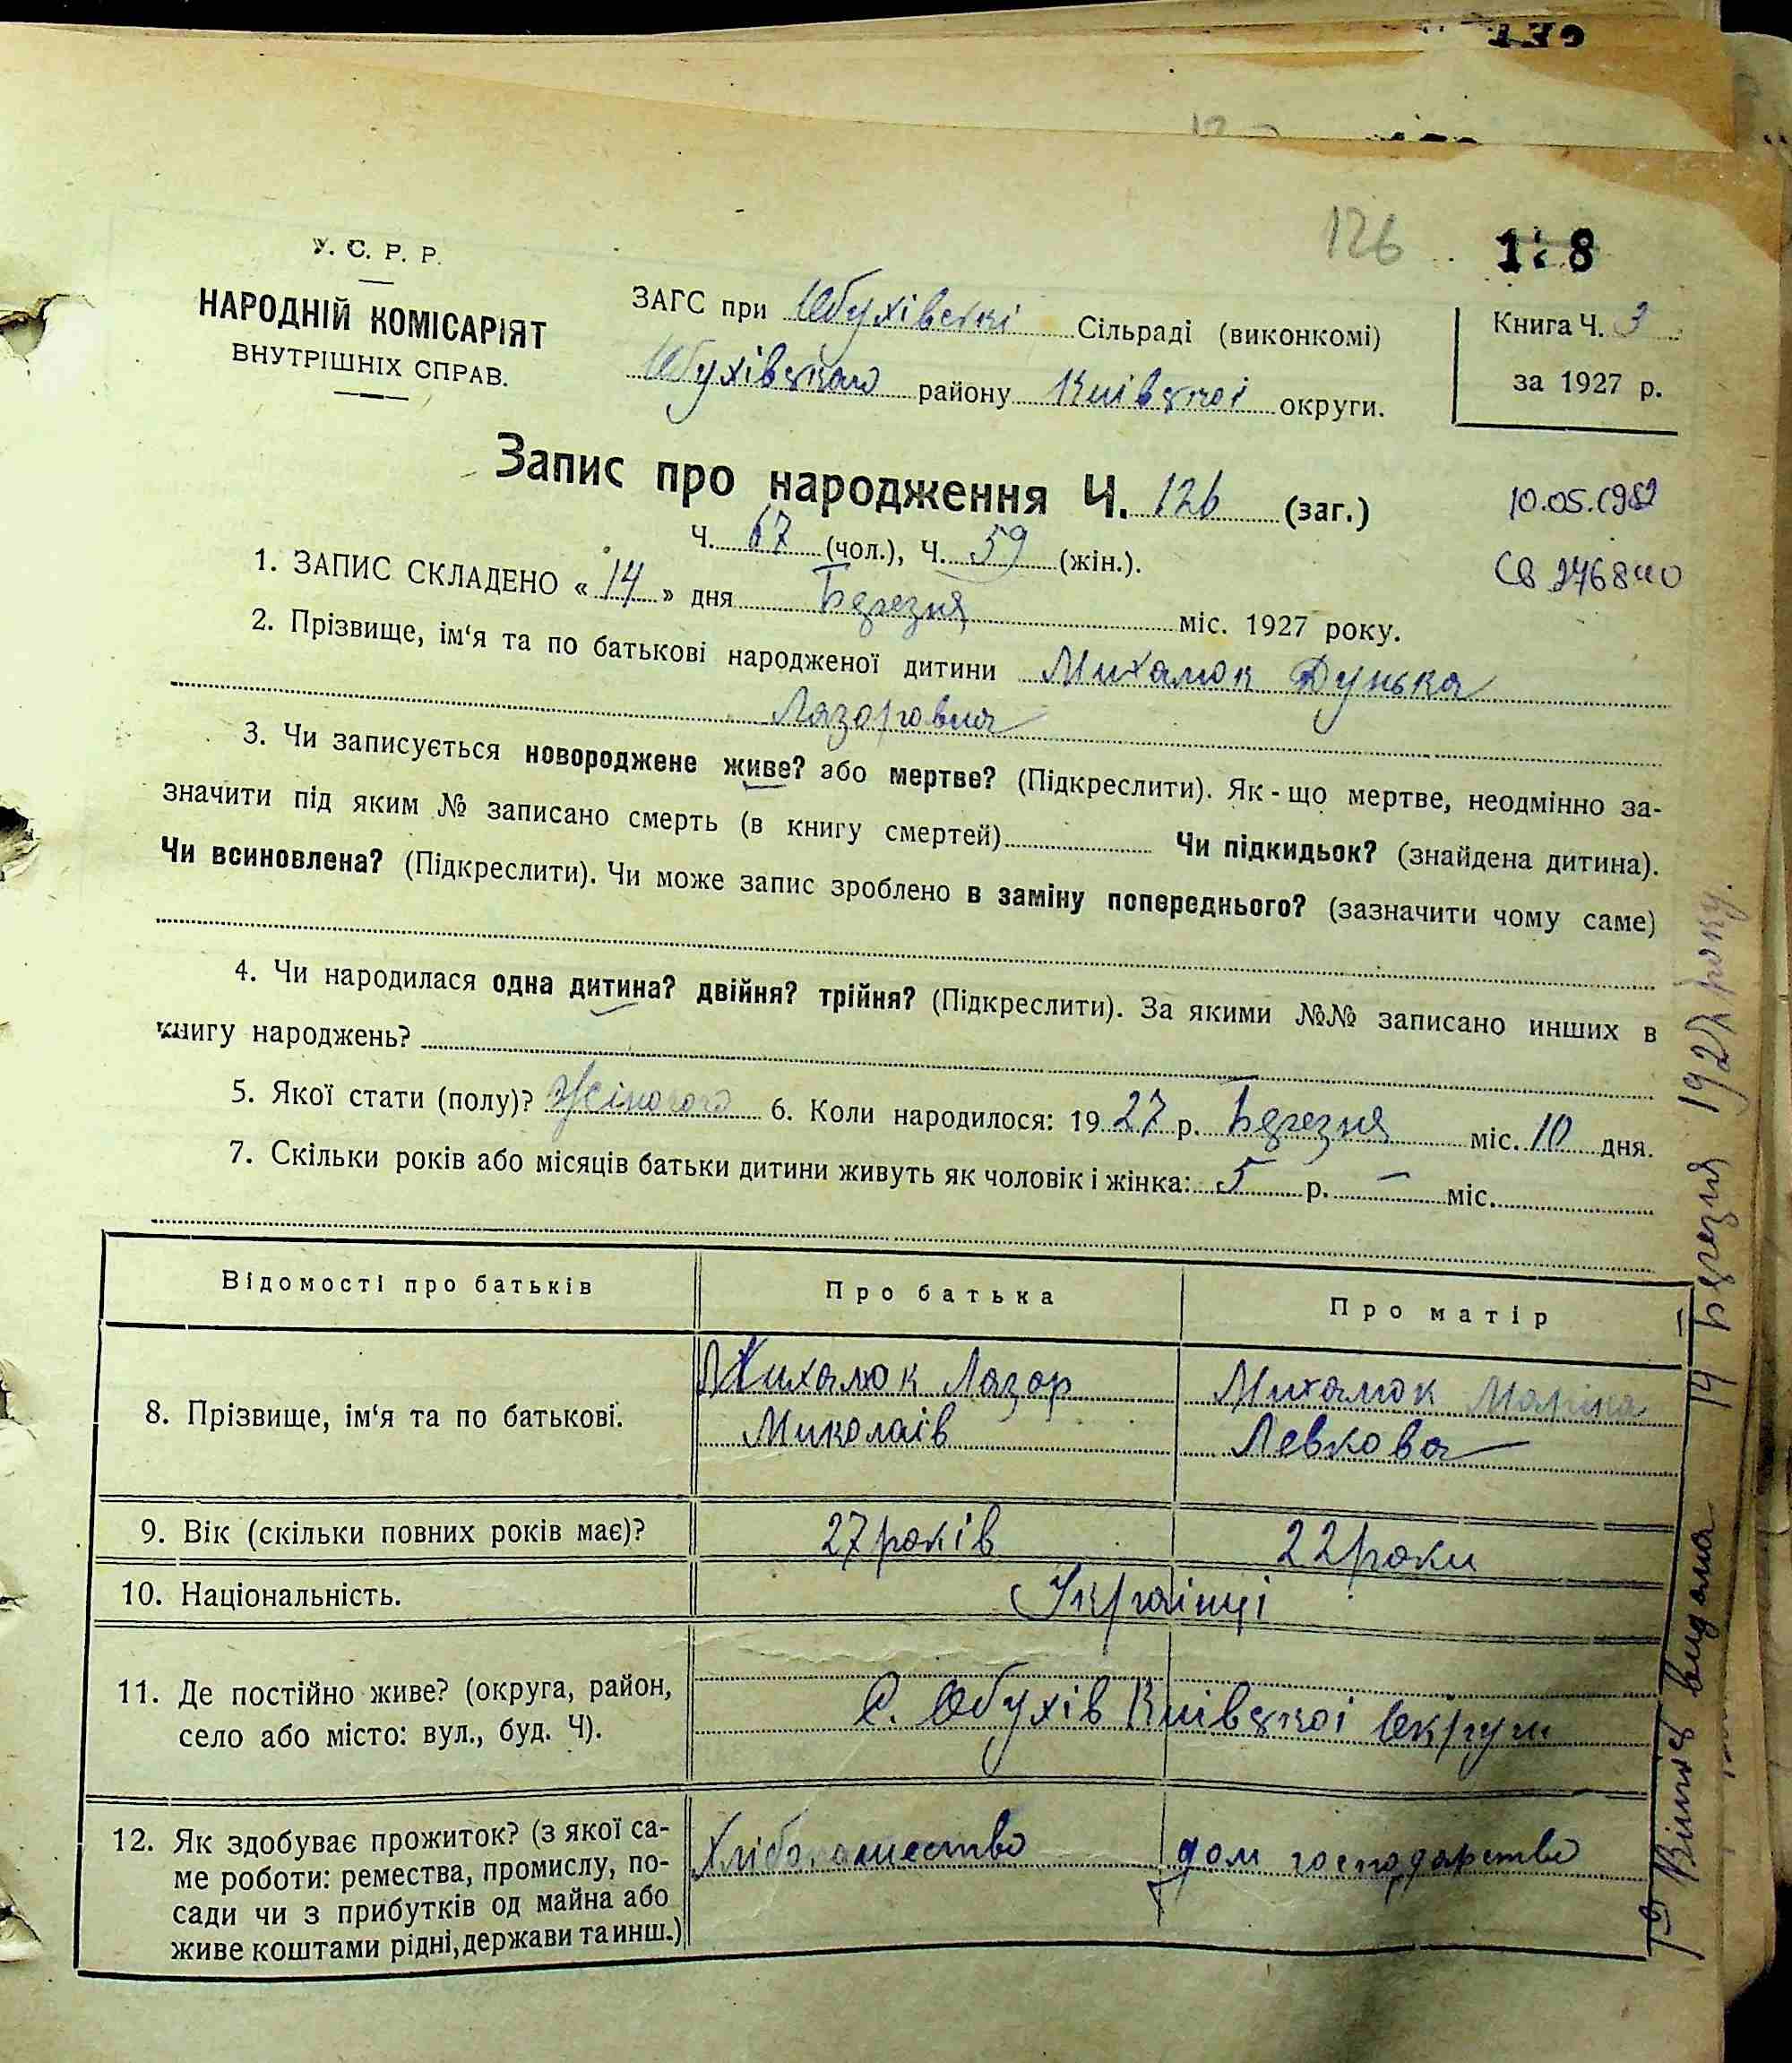 126
128
У. С. Р. Р.
НАРОДНІЙ КОМІСАРІЯТ
ВНУТРІШНІХ СПРАВ.
ЗАГС при Обухівські Сільраді (виконкомі)
Обухівського району Київської округи.
Книга Ч. 3
за 1927 р.
Запис про народження Ч. 126 (заг.)
Ч. 67 (чол.), Ч. 59 (жін.).
10.05.1982
СВ 276840
1. ЗАПИС СКЛАДЕНО « 14 » дня Березня міс. 1927 року.
2. Прізвище, ім‘я та по батькові народженої дитини Михалюк Дунька
Лазоровна
3. Чи записується новороджене живе? або мертве? (Підкреслити). Як-що мертве, неодмінно за-
значити під яким № записано смерть (в книгу смертей) Чи підкидьок? (знайдена дитина).
Чи всиновлена? (Підкреслити). Чи може запис зроблено в заміну попереднього? (зазначити чому саме)
4. Чи народилася одна дитина? двійня? трійня? (Підкреслити). За якими №№ записано инших в
книгу народжень?
5. Якої стати (полу)? Жіногого 6. Коли народилося: 19 27 р. Березня міс. 10 дня.
7. Скільки років або місяців батьки дитини живуть як чоловік і жінка: 5 р. — міс.
Відомості про батьків Про батька Про матір
8. Прізвище, ім‘я та по батькові. Михалюк Лазор Михалюк Маріна
Миколаів Левкова
9. Вік (скільки повних років має)? 27 років 22 роки
10. Національність. Українці
11. Де постійно живе? (округа, район,
село або місто: вул., буд. Ч). С. Обухів Київської Округи
12. Як здобуває прожиток? (з якої са-
ме роботи: ремества, промислу, по-
сади чи з прибутків од майна або
живе коштами рідні, держави та инш.)
Хлібопашество дом господарство
Випись видана 14 Березня 1927 року.